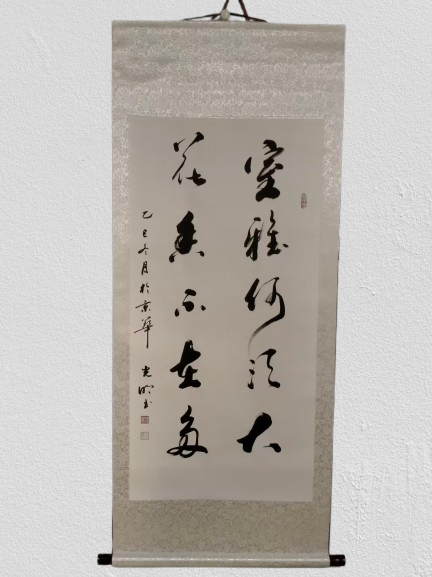 室雅何须大
花香不在多
乙巳冬月于京华 光明书